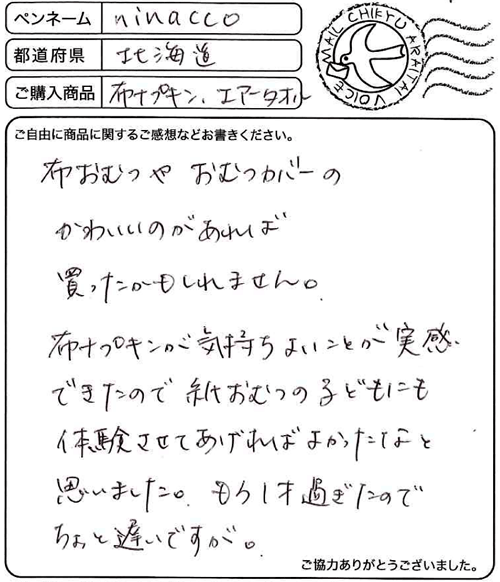 ペンネーム ninacco
都道府県 北海道
ご購入商品 布ナプキン、エアータオル
MAIL CHIEYU ARAITAI VOICE
ご自由に商品に関するご感想などお書きください。
布おむつや おむつカバーの
かわいいのがあれば
買ったかもしれません。
布ナプキンが気持ちよいことが実感
できたので 紙おむつの子どもにも
体験させてあげればよかったなと
思いました。もう1才過ぎたので
ちょと遅いですが。
ご協力ありがとうございました。